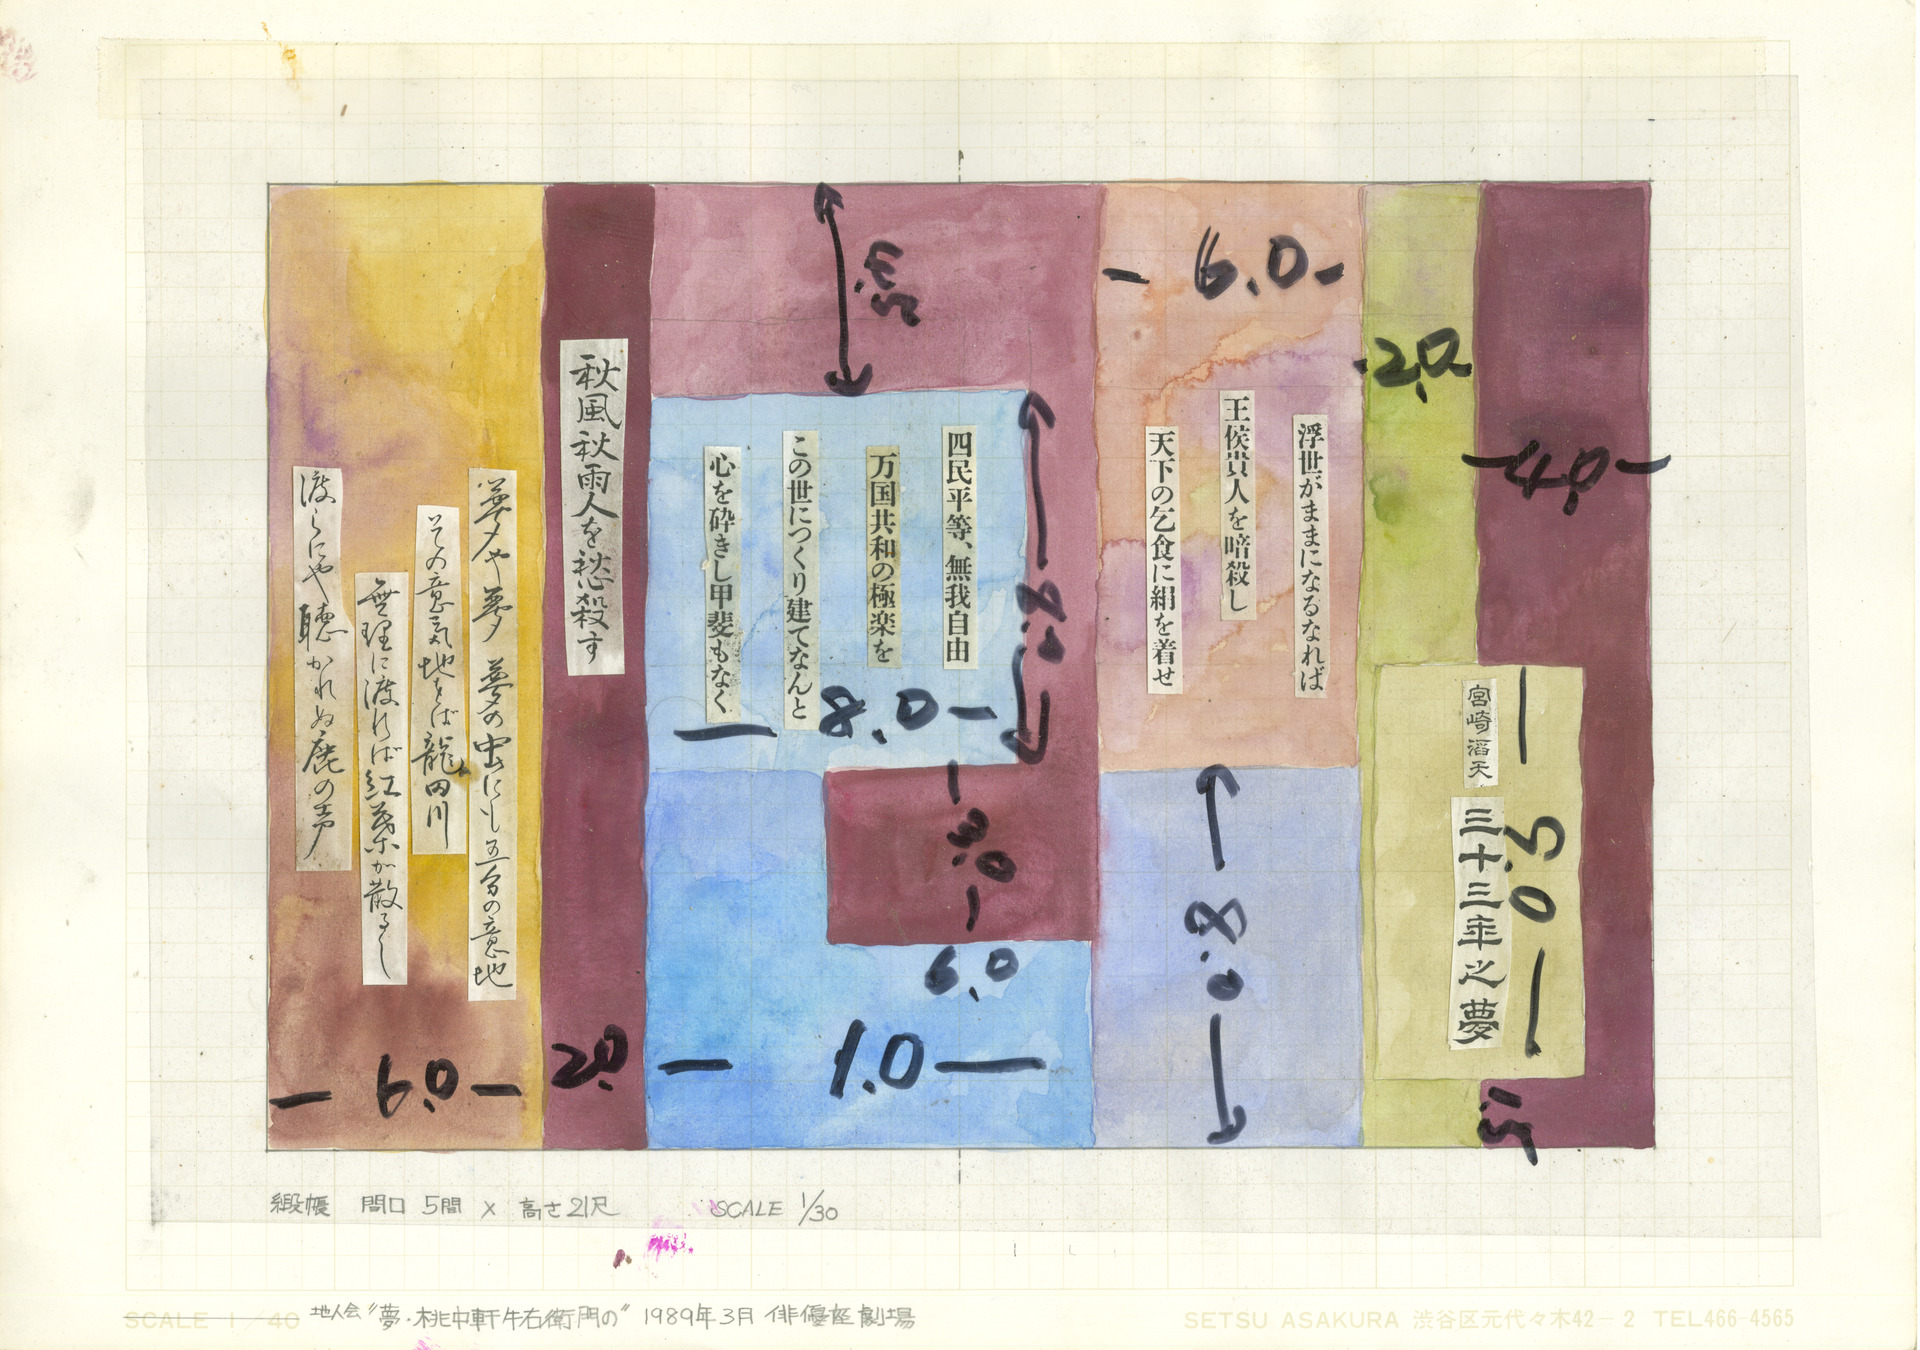 宮崎滔天
三十三年之夢
浮世がままになるなれば
王侯貴人を暗殺し
天下の乞食に絹を着せ
四民平等、無我自由
万国共和の極楽を
この世につくり建てなんと
心を砕きし甲斐もなく
秋風秋雨人を愁殺す
夢や夢 夢の中にも五分の意地
その意気地をば龍田川
無理に渡れば紅葉が散るし
渡らにや聴かれぬ鹿の声
3.5
6.0
2.0
4.0
8.0
8.0
3.0
6.0
5.0
8.0
1.0
6.0
2.0
緞帳 間口 5間 × 高さ21尺 SCALE 1/30
SCALE 1/40
地人会 "夢・桃中軒牛右衛門の" 1989年3月 俳優座劇場
SETSU ASAKURA 渋谷区元代々木42-2 TEL466-4565